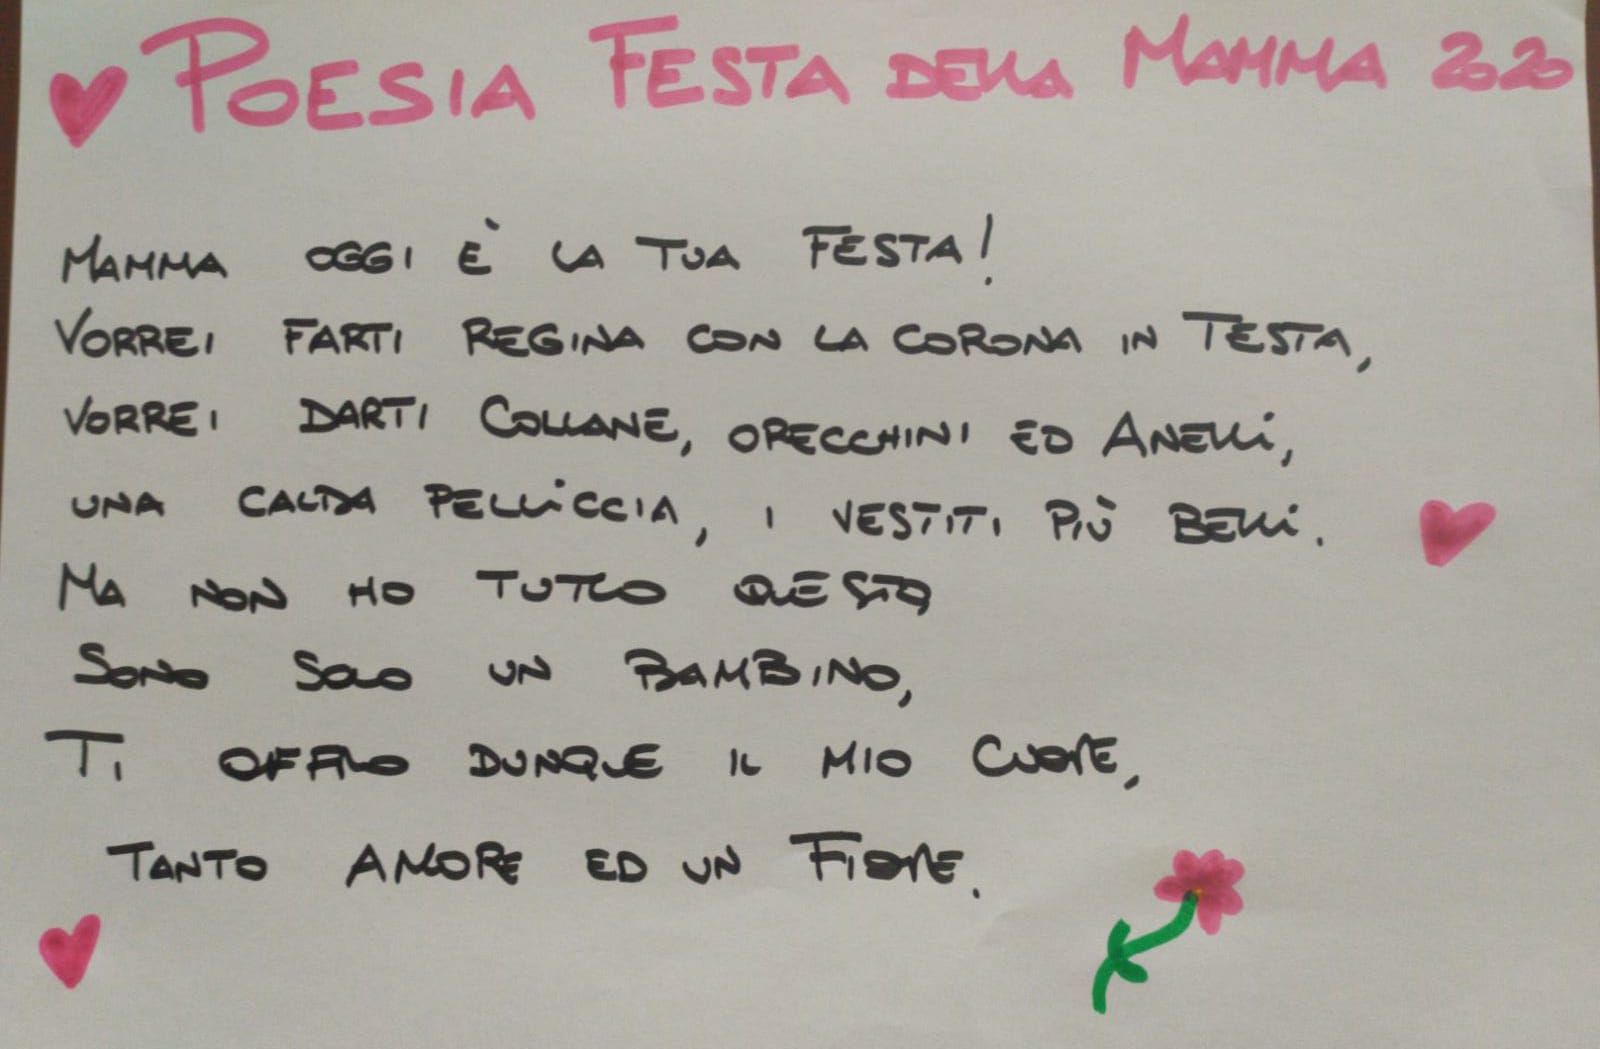 POESIA FESTA DELLA MAMMA 2020
MAMMA OGGI È LA TUA FESTA!
VORREI FARTI REGINA CON LA CORONA IN TESTA,
VORREI DARTI COLLANE, ORECCHINI ED ANELLI,
UNA CALDA PELLICCIA, I VESTITI PIÙ BELLI.
MA NON HO TUTTO QUESTO,
SONO SOLO UN BAMBINO,
TI OFFRO DUNQUE IL MIO CUORE,
TANTO AMORE ED UN FIORE.